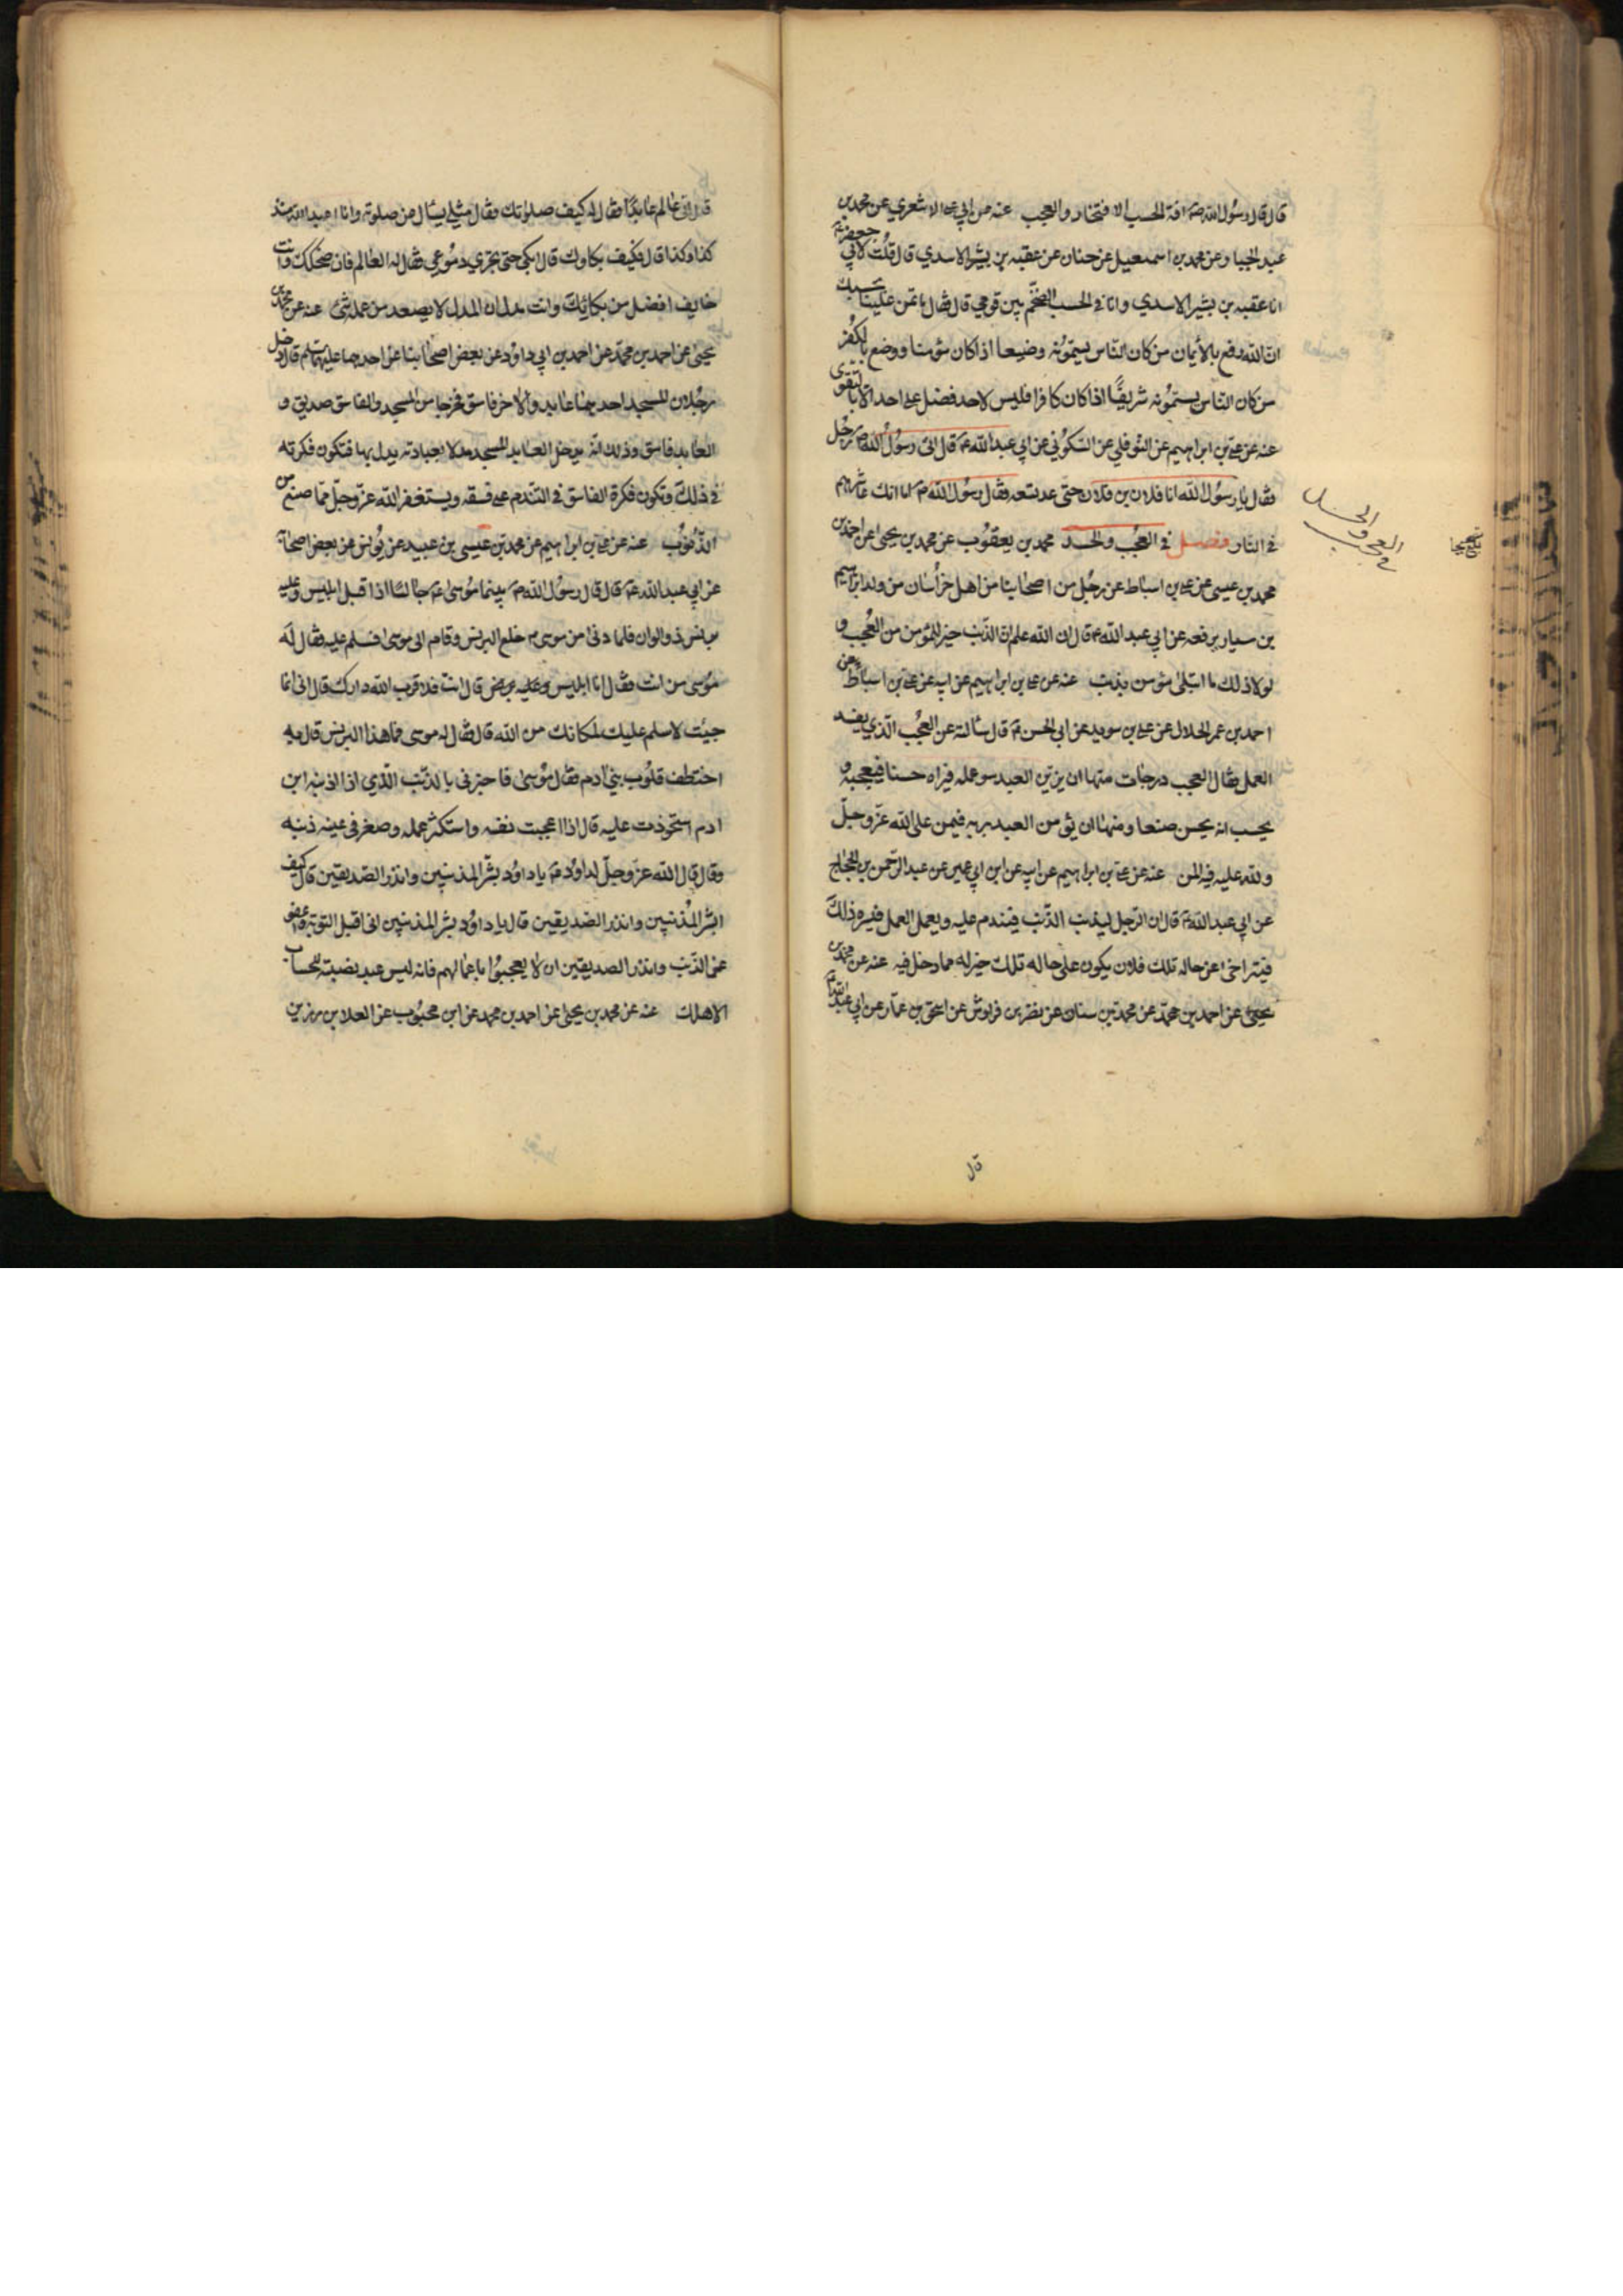 قال قال رسول الله ص افة الحسب الافتخار والعجب عنه عن ابي على الاشعري عن محمد بن
عبد الجبار وعن محمد بن اسمعيل عن حنان عن عقبه بن بشير الاسدي قال قلت لابي جعفر ع
انا عقبه بن بشير الاسدي وانا في الحسب الضخم بين قومي قال فقال ما تمن علينا بحسبك
ان الله رفع بالايمان من كان الناس يسمونه وضيعا اذا كان مؤمنا ووضع بالكفر
من كان الناس يسمونه شريفا اذا كان كافرا فليس لاحد فضل على احد الا بالتقوى
عنه عن علي بن ابراهيم عن النوفلي عن السكوني عن ابي عبد الله ع قال اتى رسول الله ص رجل
فقال يا رسول الله انا فلان بن فلان حتى عد تسعه فقال رسول الله ص اما انك عاشرهم
في النار فصل في العجب والحسد محمد بن يعقوب عن محمد بن يحيى عن احمد بن
محمد بن عيسى عن على بن اسباط عن رجل من اصحابنا من اهل خراسان من ولد ابراهيم
بن سيار يرفعه عن ابي عبد الله ع قال ان الله علم ان الذنب خير للمؤمن من العجب و
لولا ذلك ما ابتلى مؤمن بذنب عنه عن على بن ابراهيم عن ابيه عن على بن اسباط عن
احمد بن عمر الحلال عن على بن سويد عن ابي الحسن ع قال سألته عن العجب الذي يفسد
العمل فقال العجب درجات منها ان يزين العبد سوء عمله فيراه حسنا فيعجبه و
يحسب انه يحسن صنعا ومنها ان يؤمن العبد بربه فيمن على الله عز وجل
ولله عليه فيه المن عنه عن على بن ابراهيم عن ابيه عن ابن ابي عمير عن عبد الرحمن بن الحجاج
عن ابي عبد الله ع قال ان الرجل ليذنب الذنب فيندم عليه ويعمل العمل فيسره ذلك
فيتراخى عن حاله تلك فلان يكون على حاله تلك خير له مما دخل فيه عنه عن محمد بن
يحيى عن احمد بن محمد عن محمد بن سنان عن نضر بن قرواش عن اسحق بن عمار عن ابي عبد الله ع
في العجب والحسد
قال
قال اتى عالم عابدا فقال له كيف صلوتك فقال مثلى يسأل عن صلوته وانا اعبد الله منذ
كذا وكذا قال فكيف بكاؤك قال ابكى حتى تجري دموعي فقال له العالم فان ضحكك وانت
خايف افضل من بكائك وانت مدل ان المدل لا يصعد من عمله شئ عنه عن محمد بن
يحيى عن احمد بن محمد عن احمد بن ابي داود عن بعض اصحابنا عن احدهما عليهما السلام قال دخل
رجلان المسجد احدهما عابد والاخر فاسق فخرجا من المسجد والفاسق صديق و
العابد فاسق وذلك انه يدخل العابد المسجد مدلا بعبادته يدل بها فتكون فكرته
في ذلك وتكون فكرة الفاسق في التندم على فسقه ويستغفر الله عز وجل مما صنع من
الذنوب عنه عن على بن ابراهيم عن محمد بن عيسى بن عبيد عن يونس عن بعض اصحابه
عن ابي عبد الله ع قال قال رسول الله ص بينما موسى ع جالسا اذا قبل ابليس وعليه
برنس ذو الوان فلما دنى من موسى ع خلع البرنس وقام الى موسى فسلم عليه فقال له
موسى من انت فقال انا ابليس وعليه برنس قال انت فلا قرب الله دارك قال انى انما
جيت لاسلم عليك لمكانك من الله قال فقال له موسى فما هذا البرنس قال به
اختطف قلوب بني ادم فقال موسى فاخبرنى بالذنب الذي اذا اذنبه ابن
ادم استحوذت عليه قال اذا اعجبت نفسه واستكثر عمله وصغر في عينه ذنبه
وقال قال الله عز وجل لداود ع يا داود بشر المذنبين وانذر الصديقين قال كيف
ابشر المذنبين وانذر الصديقين قال يا داود بشر المذنبين انى اقبل التوبة واعفو
عن الذنب وانذر الصديقين ان لا يعجبوا باعمالهم فانه ليس عبد نصبته للحساب
الا هلك عنه عن محمد بن يحيى عن احمد بن محمد عن ابن محبوب عن العلا بن رزين